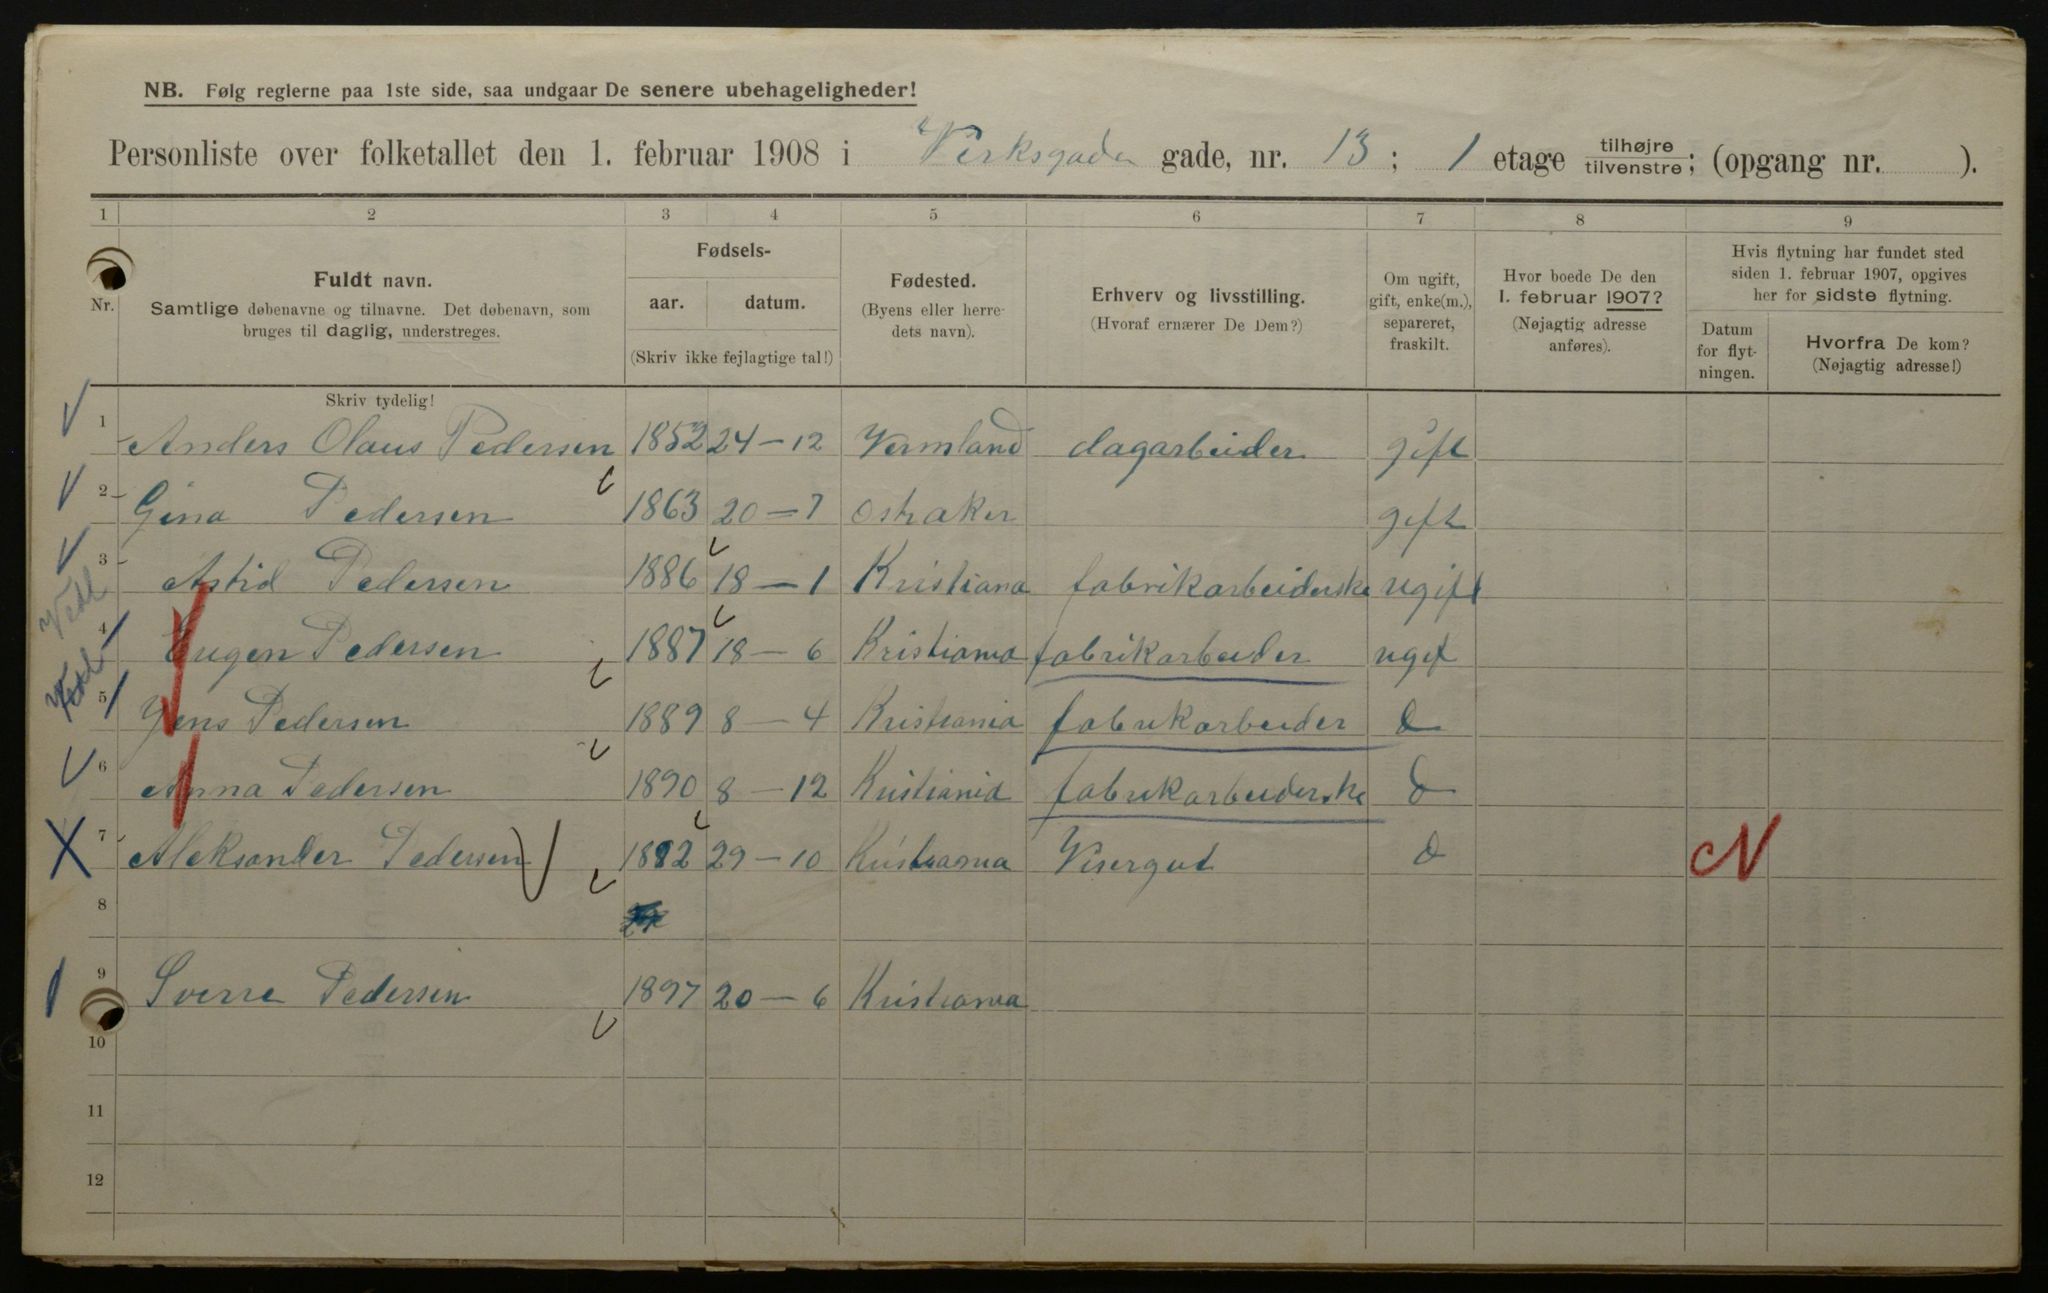 NB. Følg reglerne paa 1ste side, saa undgaar De senere ubehageligheder!
Personliste over folketallet den 1. februar 1908 i Verksgada gade, nr. 13; 1 etage tilhøjre tilvenstre; (opgang nr. ).
1 2 3 4 5 6 7 8 9
Nr.
Fuldt navn.
Samtlige døbenavne og tilnavne. Det døbenavn, som
bruges til daglig, understreges.
Fødsels-
aar. datum.
(Skriv ikke fejlagtige tal!)
Fødested.
(Byens eller herre-
dets navn).
Erhverv og livsstilling.
(Hvoraf ernærer De Dem?)
Om ugift,
gift, enke(m.),
separeret,
fraskilt.
Hvor boede De den
1. februar 1907?
(Nøjagtig adresse
anføres).
Hvis flytning har fundet sted
siden 1. februar 1907, opgives
her for sidste flytning.
Datum
for flyt-
ningen.
Hvorfra De kom?
(Nøjagtig adresse!)
Skriv tydelig!
1 Anders Olaus Pedersen 1852 24-12 Vermland dagarbeider gift
2 Gina Pedersen 1863 20-7 Ostraker gift
3 Astid Pedersen 1886 18-1 Kristiana fabrikarbeiderske ugift
4 Eugen Pedersen 1887 18-6 Kristiania fabrikarbeider ugif
5 Yens Pedersen 1889 8-4 Kristiania fabrikarbeider d
6 Anna Pedersen 1890 8-12 Kristiania fabrikarbeiderske d
7 Aleksander Pedersen 1882 29-10 Kristiania Visergut d N
8
9 Sverre Pedersen 1897 20-6 Kristiania
10
11
12